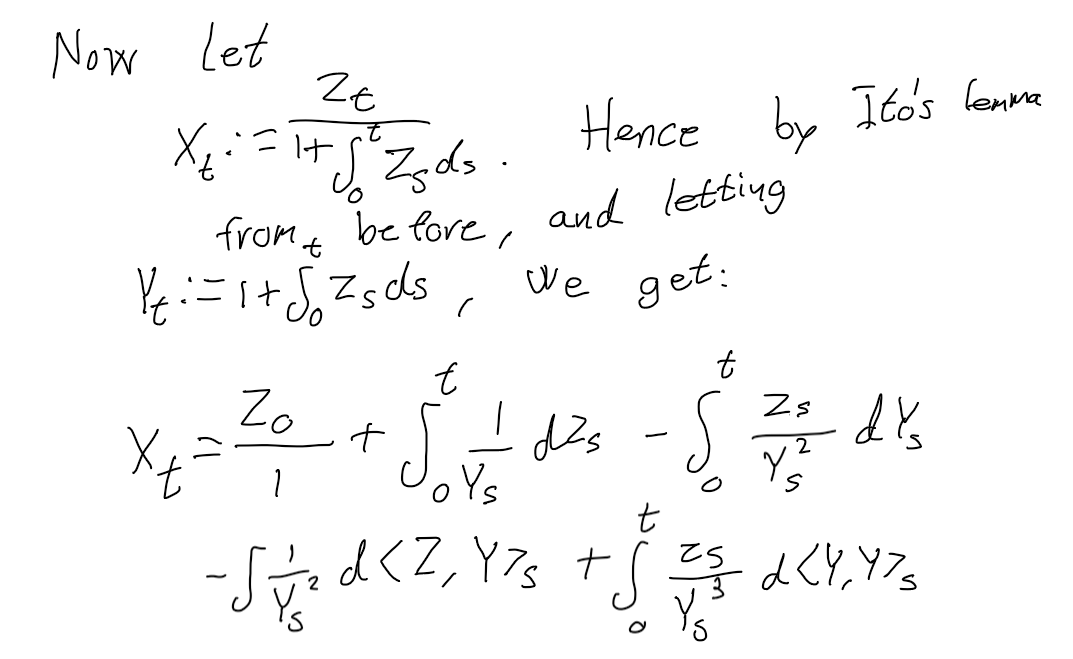 Now Let
X_t := Z_t / (1 + ∫_0^t Z_s ds) . Hence by Itô's lemma
from before, and letting
Y_t := 1 + ∫_0^t Z_s ds , we get:
X_t = Z_0 / 1 + ∫_0^t 1/Y_s dZ_s - ∫_0^t Z_s/Y_s^2 dY_s
- ∫ 1/Y_s^2 d<Z, Y>_s + ∫_0^t Z_s/Y_s^3 d<Y,Y>_s